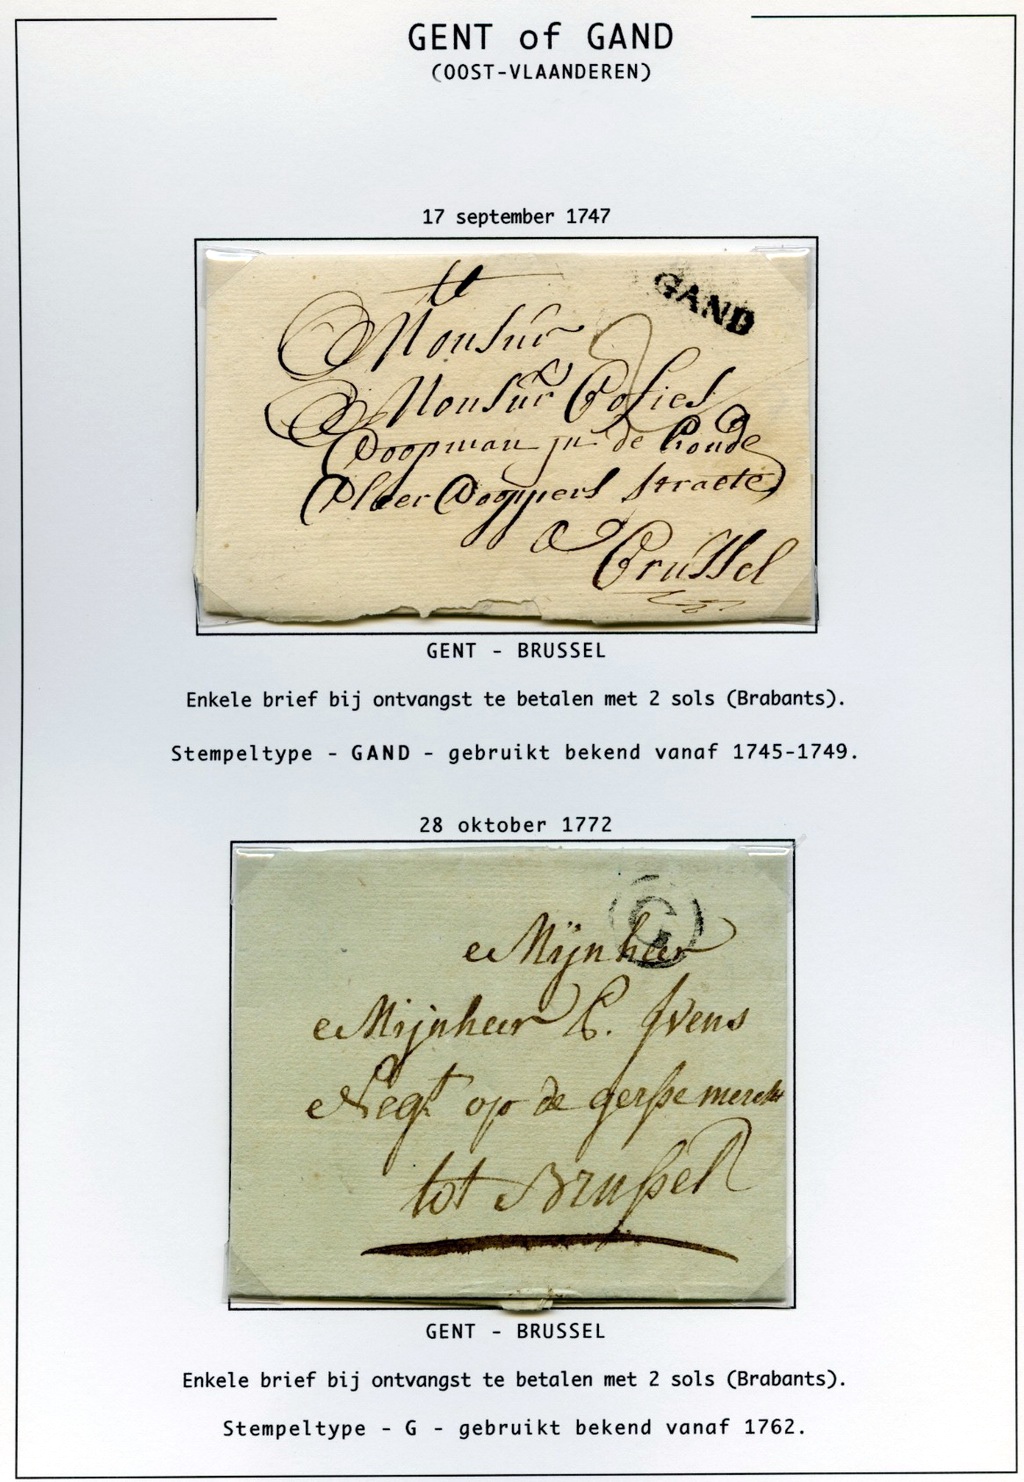 GENT of GAND
(OOST-VLAANDEREN)
17 september 1747
GAND
Monsur
Monsur
Coopman in de
straete
a Brussel
GENT - BRUSSEL
Enkele brief bij ontvangst te betalen met 2 sols (Brabants).
Stempeltype - GAND - gebruikt bekend vanaf 1745-1749.
28 oktober 1772
G
Mijnheer
Mijnheer Ivens
Negt op de
tot Brussel
GENT - BRUSSEL
Enkele brief bij ontvangst te betalen met 2 sols (Brabants).
Stempeltype - G - gebruikt bekend vanaf 1762.